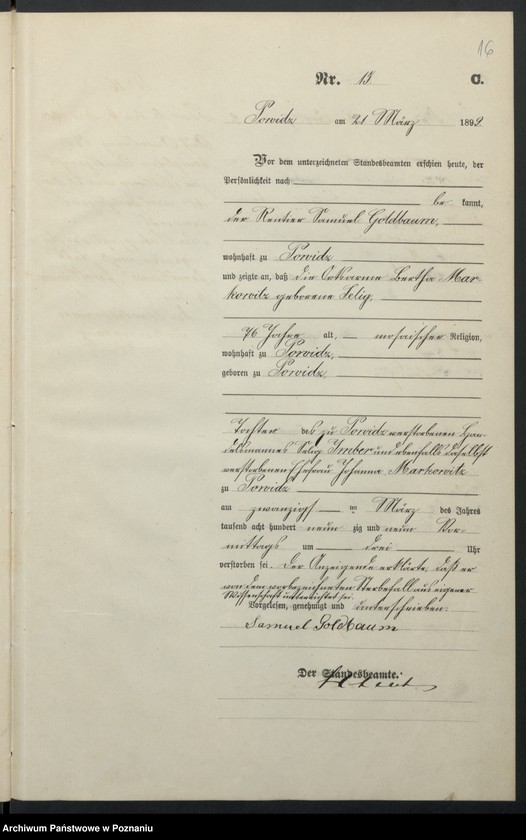 16
Nr. 15. C.
Powidz am 21 März 1899.
Vor dem unterzeichneten Standesbeamten erschien heute, der
Persönlichkeit nach
be kannt,
der Rentier Samuel Goldbaum,
wohnhaft zu Powidz
und zeigte an, daß die Ortsarme Bertha Mar-
kowitz geborene Selig,
76 Jahre alt, mosaischer Religion,
wohnhaft zu Powidz,
geboren zu Powidz,
Tochter des zu Powidz verstorbenen Han-
delsmannes Selig Imber und ebenfalls daselbst
verstorbenen Ehefrau Johanna Markowitz
zu Powidz
am zwanzigsten März des Jahres
tausend acht hundert neun zig und neun Vor-
mittags um drei Uhr
verstorben sei. Der Anzeigende erklärte, daß er
von dem vorbezeichneten Sterbefall aus eigener
Wissenschaft unterrichtet sei.
Vorgelesen, genehmigt und unterschrieben:
Samuel Goldbaum
Der Standesbeamte.
Archiwum Państwowe w Poznaniu